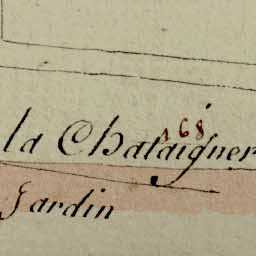 168
la Chataigner
Jardin